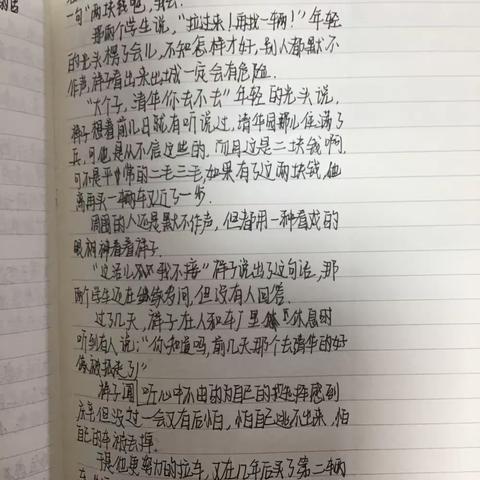 句"两块钱吧,
那两个学生说,"拉过来!再找一辆!"年轻
的光头楞了会儿,不知怎样才好,别人都默不
作声,祥子看出来出城一定会有危险.
"大个子,清华你去不去"年轻的光头说,
祥子想着前几日就有听说过,清华园那儿住满了
兵,可他是从不信这些的.而且这是二块钱啊,
可不是平常的二毛三毛,如果有了这两块钱,他
离再买一辆车又近了一步.
周围的人还是默不作声,但都用一种看戏的
眼神看着祥子.
"这活儿我不接"祥子说出了这句话,那
两个学生还在继续考问,但没有人回答.
过了几天,祥子在人和车厂里休息时
听到有人说:"你知道吗,前几天那个去清华的好
像被抓走了!"
祥子听心中不由的为自己的选择感到
庆幸但没过一会又有后怕,怕自己逃不出来,怕
自己的车被丢掉.
于是他更努力的拉车,又在几年后买了第二辆